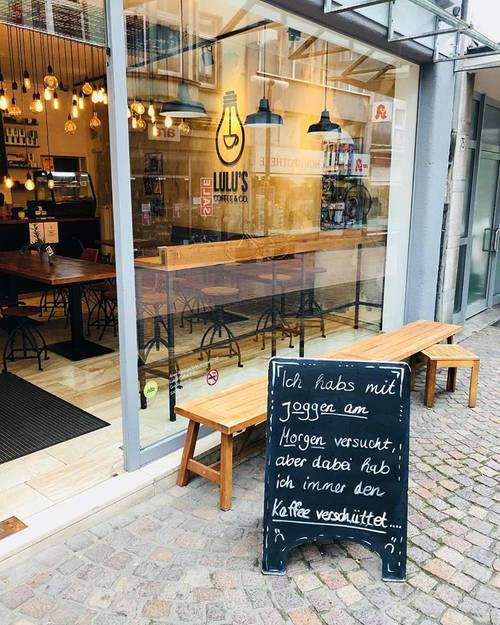 LULU'S
COFFEE & CO.
SALE
Ich habs mit
joggen am
Morgen versucht,
aber dabei hab
ich immer den
Kaffee verschüttet....